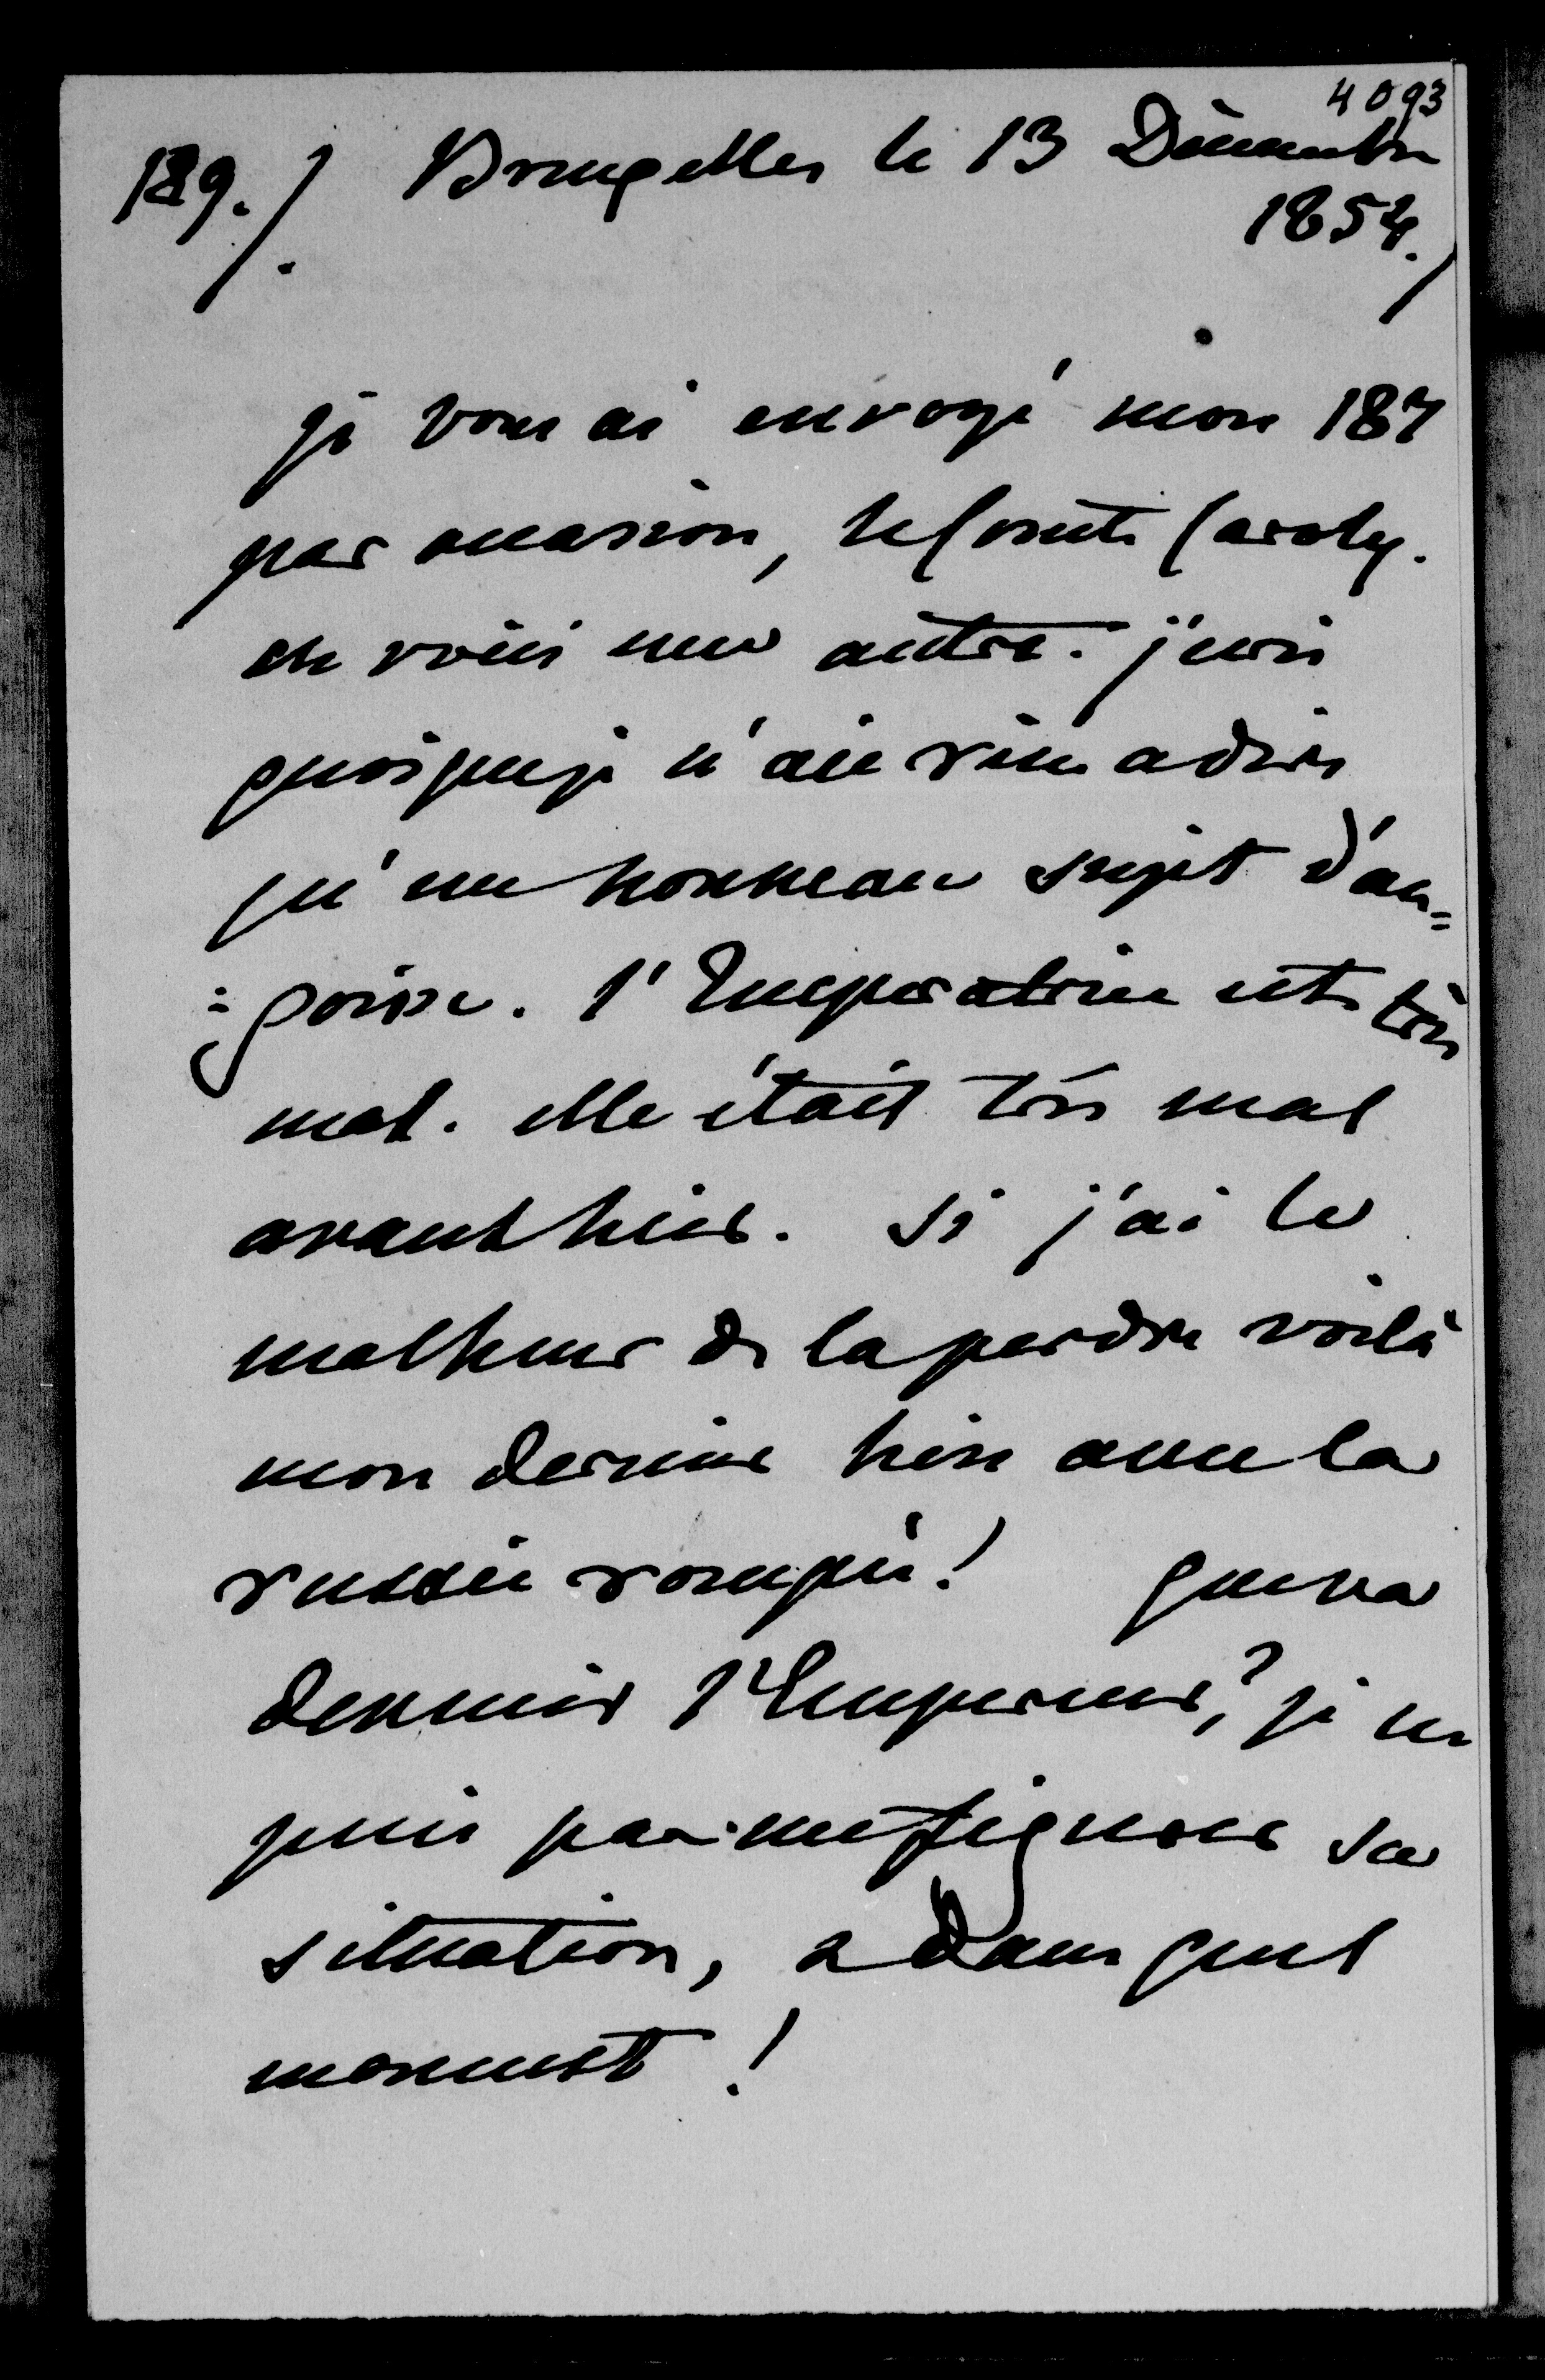 4093
189./. Bruxelles le 13 Décembre
1854./
je vous ai envoyé mon 187
par occasion, le Comte Caroly.
en voici une autre. j'écris
quoique je n'aie rien a dire
qu'un nouveau sujet d'an=
=goisse. l'Impératrice est très
mal. elle était très mal
avant hier. si j'ai le
malheur de la perdre voilà
mon dernier lien avec la
russie rompu! que va
devenir l'Empereur,? je ne
puis pas me figurer sa
situation, & dans quel
moment!